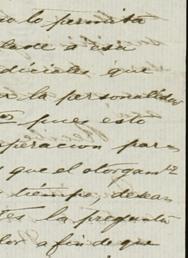 lo permita
dade a esa
diciales que
a la personalidad
pues esto
operacion para
que el otorgante
tiempo, desean
tes la pregunta
lor a fin de que